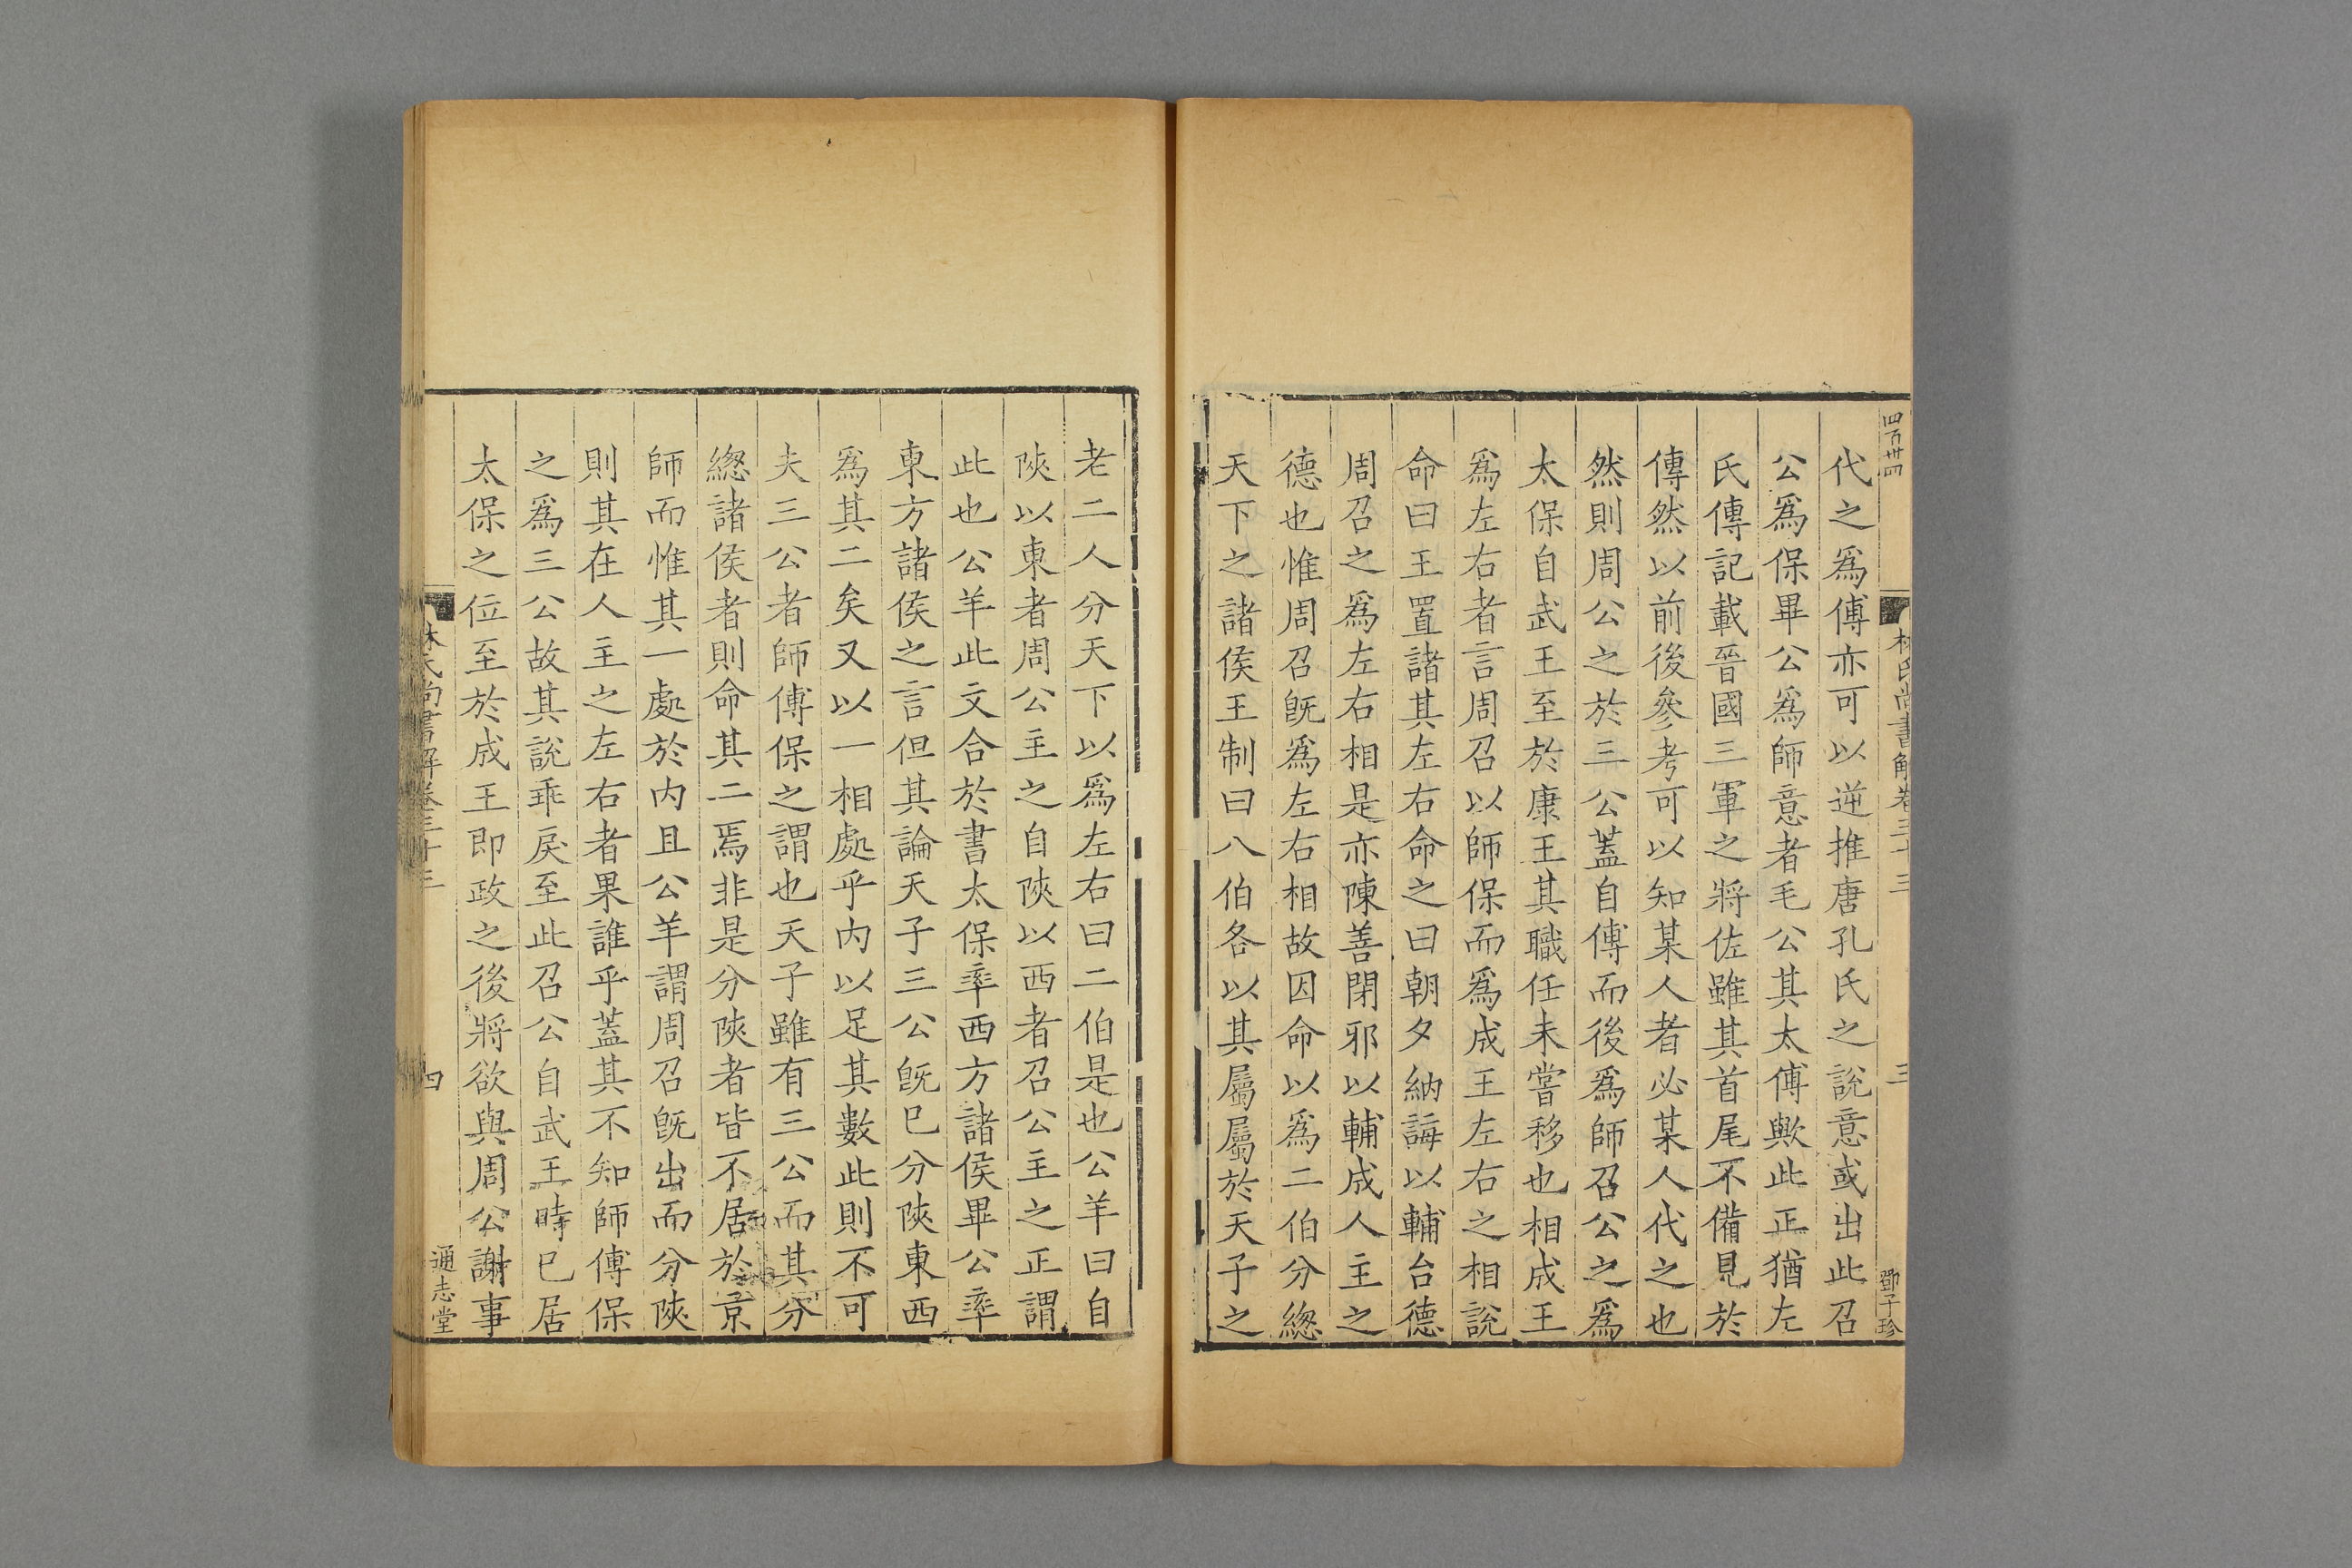 四百卅四
林氏尚書解卷三十三
三
鄧子珍
代之爲傅亦可以逆推唐孔氏之說意或出此召
公爲保畢公爲師意者毛公其太傅歟此正猶左
氏傳記載晉國三軍之將佐雖其首尾不備見於
傳然以前後參考可以知某人者必某人代之也
然則周公之於三公蓋自傅而後爲師召公之爲
太保自武王至於康王其職任未嘗移也相成王
爲左右者言周召以師保而爲成王左右之相說
命曰王置諸其左右命之曰朝夕納誨以輔台德
周召之爲左右相是亦陳善閉邪以輔成人主之
德也惟周召旣爲左右相故因命以爲二伯分緫
天下之諸侯王制曰八伯各以其屬屬於天子之
老二人分天下以爲左右曰二伯是也公羊曰自
陜以東者周公主之自陜以西者召公主之正謂
此也公羊此文合於書太保率西方諸侯畢公率
東方諸侯之言但其論天子三公旣巳分陜東西
爲其二矣又以一相處乎内以足其數此則不可
夫三公者師傅保之謂也天子雖有三公而其分
緫諸侯者則命其二焉非是分陜者皆不居於京
師而惟其一處於内且公羊謂周召旣出而分陜
則其在人主之左右者果誰乎蓋其不知師傅保
之爲三公故其說乖戾至此召公自武王時巳居
太保之位至於成王即政之後將欲與周公謝事
林氏尚書解卷三十三
四
通志堂